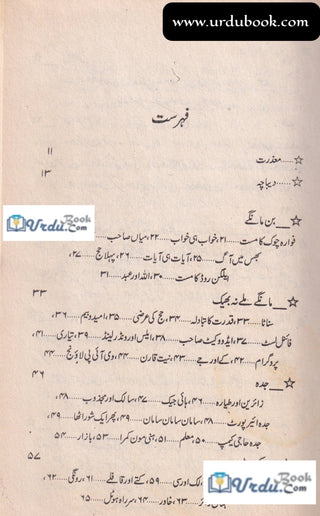 www.urdubook.com
فہرست
☆......معذرت ۱۱
☆......دیباچہ ۱۳
☆__ بن مانگے
فوارہ چوک کا مست.....۲۱، خواب ہی خواب.....۲۲، میاں صاحب
بھس میں آگ.....۲۵، آیات ہی آیات.....۲۶، پہلا حج.....۲۷،
ایلگن روڈ کا مست.....۳۰، اللہ اور عبد.....۳۱
UrduBook.Com
☆__ مانگے ملے نہ بھیک ۳۳
سناٹا.....۳۳، قدرت کا تبادلہ.....۳۴، حج کی عرضی.....۳۵، امید و بیم.....۳۶،
فائنل لسٹ.....۳۷، ایڈووکیٹ صاحب.....۳۸، ایلس اور ونڈر لینڈ.....۳۹، تیاری.....۴۱
پروگرام.....۴۲، کے اور جے.....۴۳، نیت قارن.....۴۴، وی آئی پی لاؤنج.....۴۴
☆__ جدہ ۴۶
زائرین اور طیارہ.....۴۶، ہائی جیک.....۴۷، سالک اور مجذوب.....۴۸،
جدہ ائیرپورٹ.....۴۸، سامان سامان سامان.....۴۹، پھر ایک شور اٹھا.....۴۹
جدہ حاجی کیمپ.....۵۰، معلم.....۵۱، ہنی مون کمرا.....۵۳، بازار.....۵۴
۵۷
مالک اور سی.....۵۹، کتے اور قافلے.....۶۱، رونگی.....۶۲،
۶۳، خاور.....۶۴، سر راہ ہوٹل.....۶۵
UrduBook.Com